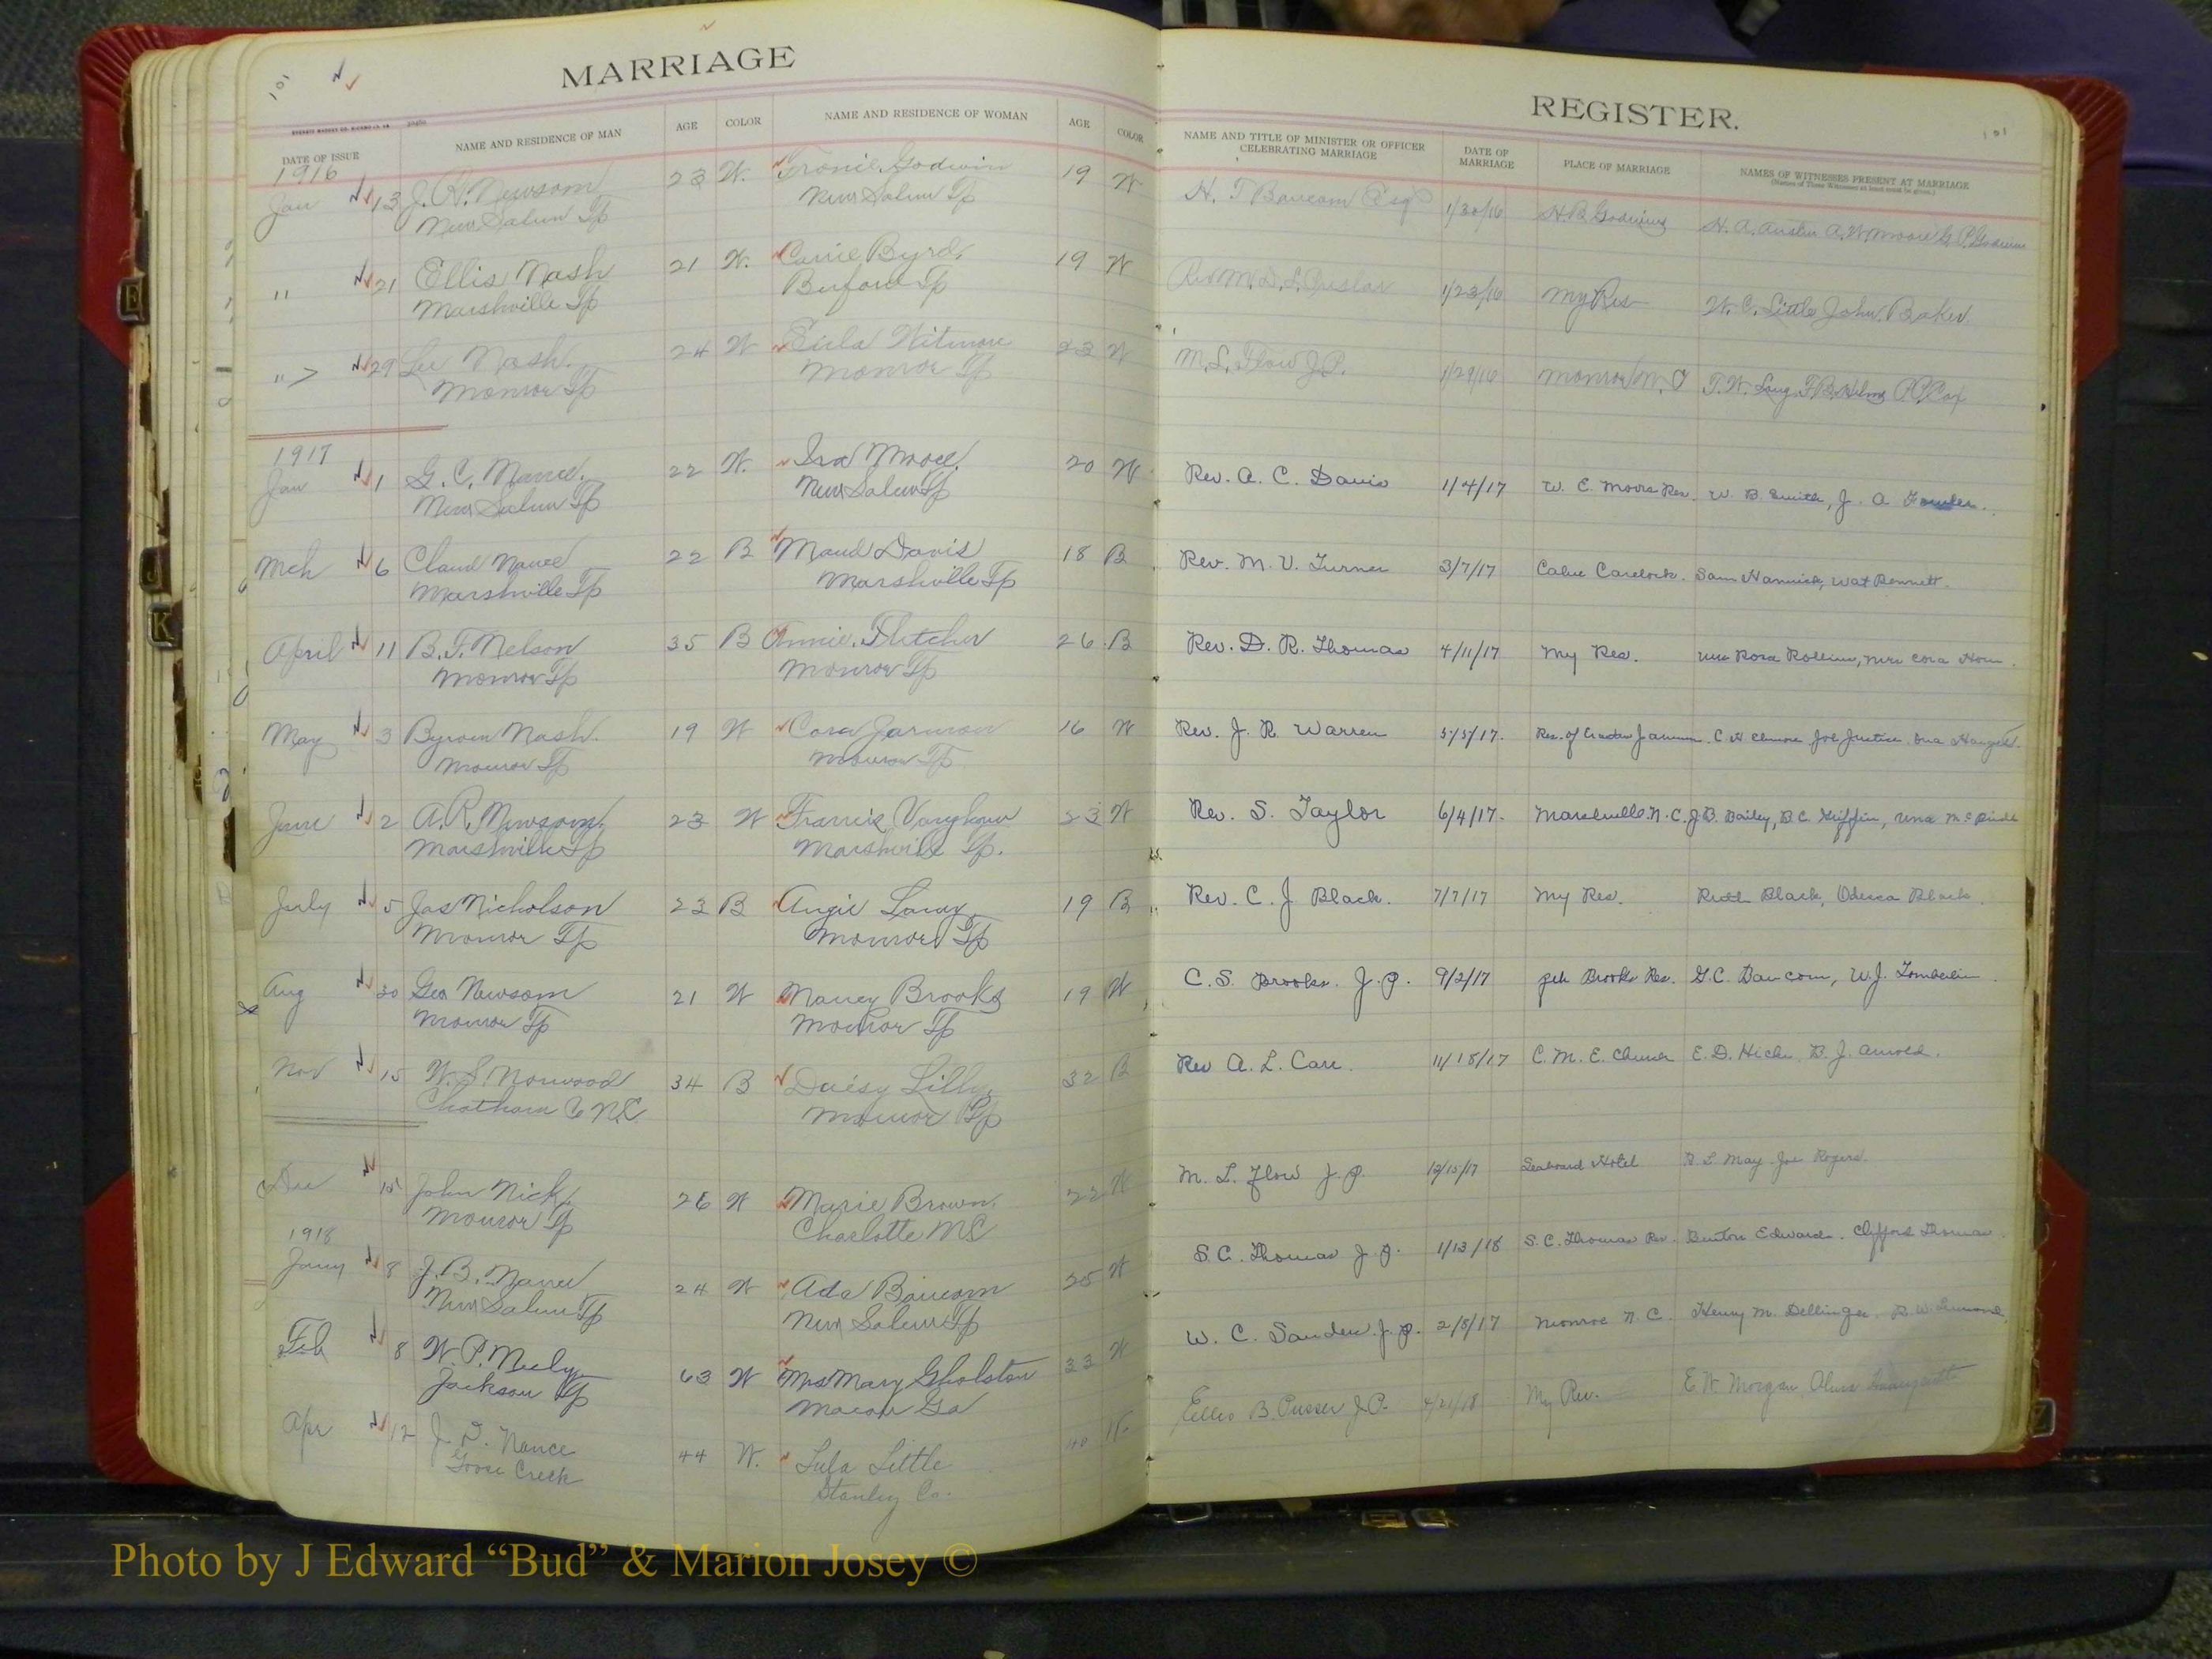 MARRIAGE
REGISTER.
101
101
DATE OF ISSUE
NAME AND RESIDENCE OF MAN
AGE
COLOR
NAME AND RESIDENCE OF WOMAN
AGE
COLOR
NAME AND TITLE OF MINISTER OR OFFICER
CELEBRATING MARRIAGE
DATE OF
MARRIAGE
PLACE OF MARRIAGE
NAMES OF WITNESSES PRESENT AT MARRIAGE
(Names of Three Witnesses at least must be given.)
1916
Jan 13 J. R. Newsom 23 W. Godwin 19 W H. T. Baucom Esq 1/30/16 H. B. Godwins H. A. Austin A. W. Moore G. P. Godwin
New Salem Tp New Salem Tp
" 21 Ellis Nash 21 W. Carrie Byrd 19 W Rev M. D. L. 1/23/16 My Res W. C. Little John Baker
Marshville Tp Buford Tp
" 29 Lee Nash 24 W 23 W M. L. Flow J.P. 1/29/16 Monroe N.C. T. W. Long F. B. Helms
Monroe Tp Monroe Tp
1917
Jan 1 G. C. Nance 22 W. Ira Moore 20 W Rev. A. C. Davis 1/4/17 W. E. Moore Res. W. B. Smith, J. A.
New Salem Tp New Salem Tp
Mch 6 Claud Nance 22 B Maud Davis 18 B Rev. M. V. Turner 3/7/17 Sam Hannick, Wat Bennett.
Marshville Tp Marshville Tp
April 11 B. F. Nelson 35 B Annie Fletcher 26 B Rev. D. R. Thomas 4/11/17 My Res. Rosa Rollins, Mrs Cora
Monroe Tp Monroe Tp
May 3 Byron Nash 19 W Cora Jarman 16 W Rev. J. R. Warren 5/5/17. Res. of Joe Justice
Monroe Tp Monroe Tp
June 2 A. R. Newsom 23 W 23 W Rev. S. Taylor 6/4/17. Marshville N.C. J. B. Bailey, B. C. Griffin,
Marshville Tp Marshville Tp.
July 5 Jas Nicholson 23 B Angie 19 B Rev. C. J. Black. 7/7/17 My Res. Ruth Black, Odessa Black.
Monroe Tp Monroe Tp
Aug 30 Geo Newsom 21 W Nancy Brooks 19 W C. S. Brooks. J. P. 9/2/17 Brooks Res. G. C. Baucom, W. J. Tomberlin
Monroe Tp Monroe Tp
Nov 15 W. S. Norwood 34 B Daisy Lilly 32 B Rev A. L. Carr. 11/18/17 C. M. E. Church E. D. Hicks B. J. Arnold.
Chatham Co N.C. Monroe Tp
Dec 15 John Nick 26 W Marie Brown 22 W M. L. Flow J. P. 12/15/17 Seaboard Hotel May Joe Rogers
Monroe Tp Charlotte NC
1918
Jany 8 J. B. Nance 24 W Ada Baucom 25 W S. C. Thomas J. P. 1/13/18 S. C. Thomas Res. Benton Edwards. Clifford Thomas.
New Salem Tp New Salem Tp
Feb 8 W. P. Neely 63 W Mrs Mary Gholston 33 W W. C. Sanders J. P. 2/8/17 Monroe N. C. Henry M. Dellinger.
Jackson Tp Macon Ga
Apr 12 J. D. Nance 44 W. Lula Little 40 W. Ellis B. Pusser J.P. 4/21/18 My Res. E. W. Morgan
Goose Creek Stanley Co.
E
J
K
Photo by J Edward “Bud” & Marion Josey ©